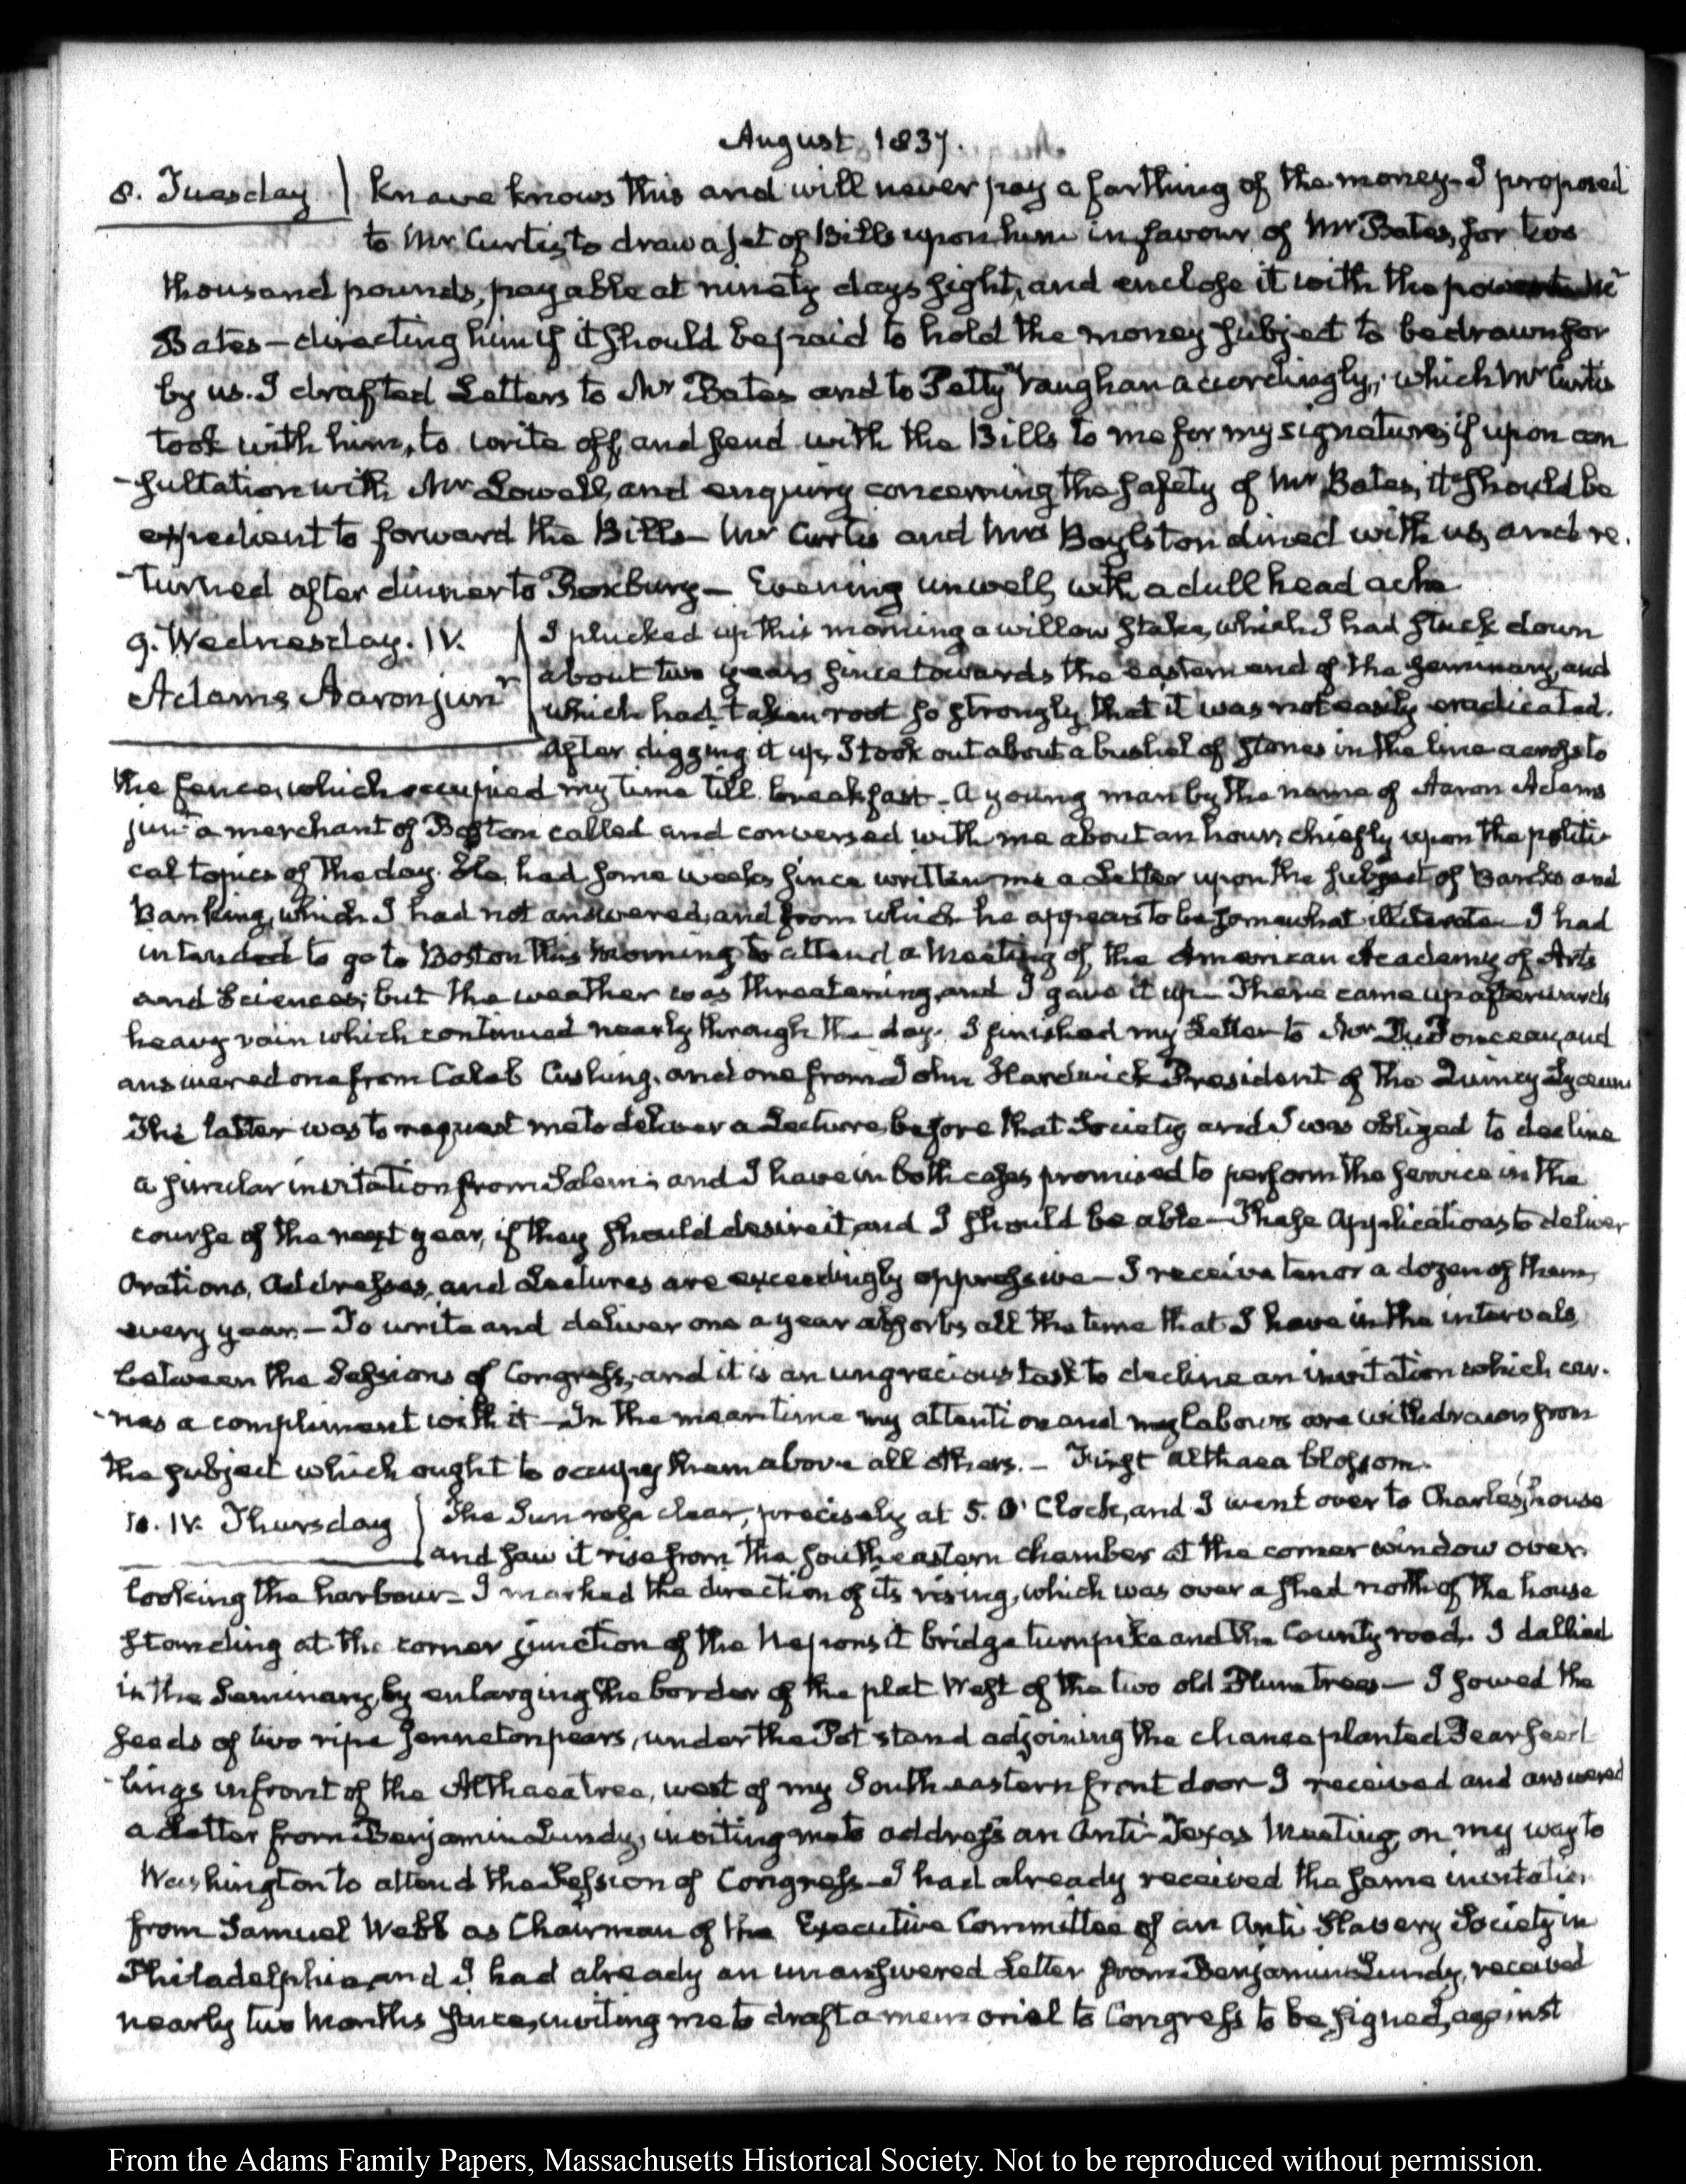 August 1837.
8. Tuesday knave knows this and will never pay a farthing of the money - I proposed
to Mr Curtis, to draw a set of Bills upon him in favour of Mr Bates, for two
thousand pounds, payable at ninety days sight, and enclose it with the power to Mr
Bates - directing him if it should be paid to hold the money subject to be drawn for
by us. I drafted Letters to Mr Bates and to Petty Vaughan accordingly, which Mr Curtis
took with him, to write off, and send with the Bills to me for my signature, if upon con
-sultation with Mr Lowell, and enquiry concerning the safety of Mr Bates, it should be
expedient to forward the Bills - Mr Curtis and Mrs Boylston dined with us, and re-
-turned after dinner to Roxbury - Evening unwell, with a dull head ache
9. Wednesday. IV. I plucked up this morning a willow stake, which I had stuck down
about two years since towards the eastern end of the seminary, and
Adams Aaron junr which had taken root so strongly that it was not easily eradicated.
After digging it up, I took out about a bushel of stones in the line across to
the fence, which occupied my time till breakfast - A young man by the name of Aaron Adams
junr a merchant of Boston called and conversed with me about an hour, chiefly upon the politi-
cal topics of the day. He had some weeks since written me a Letter upon the subject of Banks and
Banking, which I had not answered, and from which he appears to be somewhat illiterate - I had
intended to go to Boston this morning to attend a Meeting of the American Academy of Arts
and Sciences; but the weather was threatening, and I gave it up - There came up afterwards
heavy rain which continued nearly through the day. I finished my Letter to Mr DuPonceau, and
answered one from Caleb Cushing, and one from John Hardwick President of the Quincy Lyceum
The latter was to request me to deliver a Lecture, before that Society and I was obliged to decline
a similar invitation from Salem; and I have in both cases promised to perform the service in the
course of the next year, if they should desire it, and I should be able - These applications to deliver
Orations, Addresses, and Lectures are exceedingly oppressive - I receive ten or a dozen of them,
every year - To write and deliver one a year absorbs all the time that I have in the intervals
between the Sessions of Congress, and it is an ungracious task to decline an invitation which car-
-ries a compliment with it - In the mean time my attention and my labours are withdrawn from
the subject which ought to occupy them above all others. - First Althaea blossom.
10. IV. Thursday The Sun rose clear, precisely at 5. O'Clock, and I went over to Charles's house
and saw it rise from the southeastern chamber at the corner window over
looking the harbour - I marked the direction of its rising, which was over a shed north of the house
standing at the corner junction of the Neponsit bridge turnpike and the County road. I dallied
in the Seminary, by enlarging the border of the plat West of the two old Plum trees - I sowed the
seeds of two ripe Jenneton pears, under the Pot stand adjoining the chance planted Pear seed-
-lings in front of the Althaea tree, west of my South eastern front door - I received and answered
a Letter from Benjamin Lundy, inviting me to address an Anti-Texas Meeting, on my way to
Washington to attend the Session of Congress - I had already received the same invitation
from Samuel Webb as Chairman of the Executive Committee of an Anti Slavery Society in
Philadelphia, and I had already an unanswered Letter from Benjamin Lundy, received
nearly two Months since, inviting me to draft a memorial to Congress to be signed, against
From the Adams Family Papers, Massachusetts Historical Society. Not to be reproduced without permission.